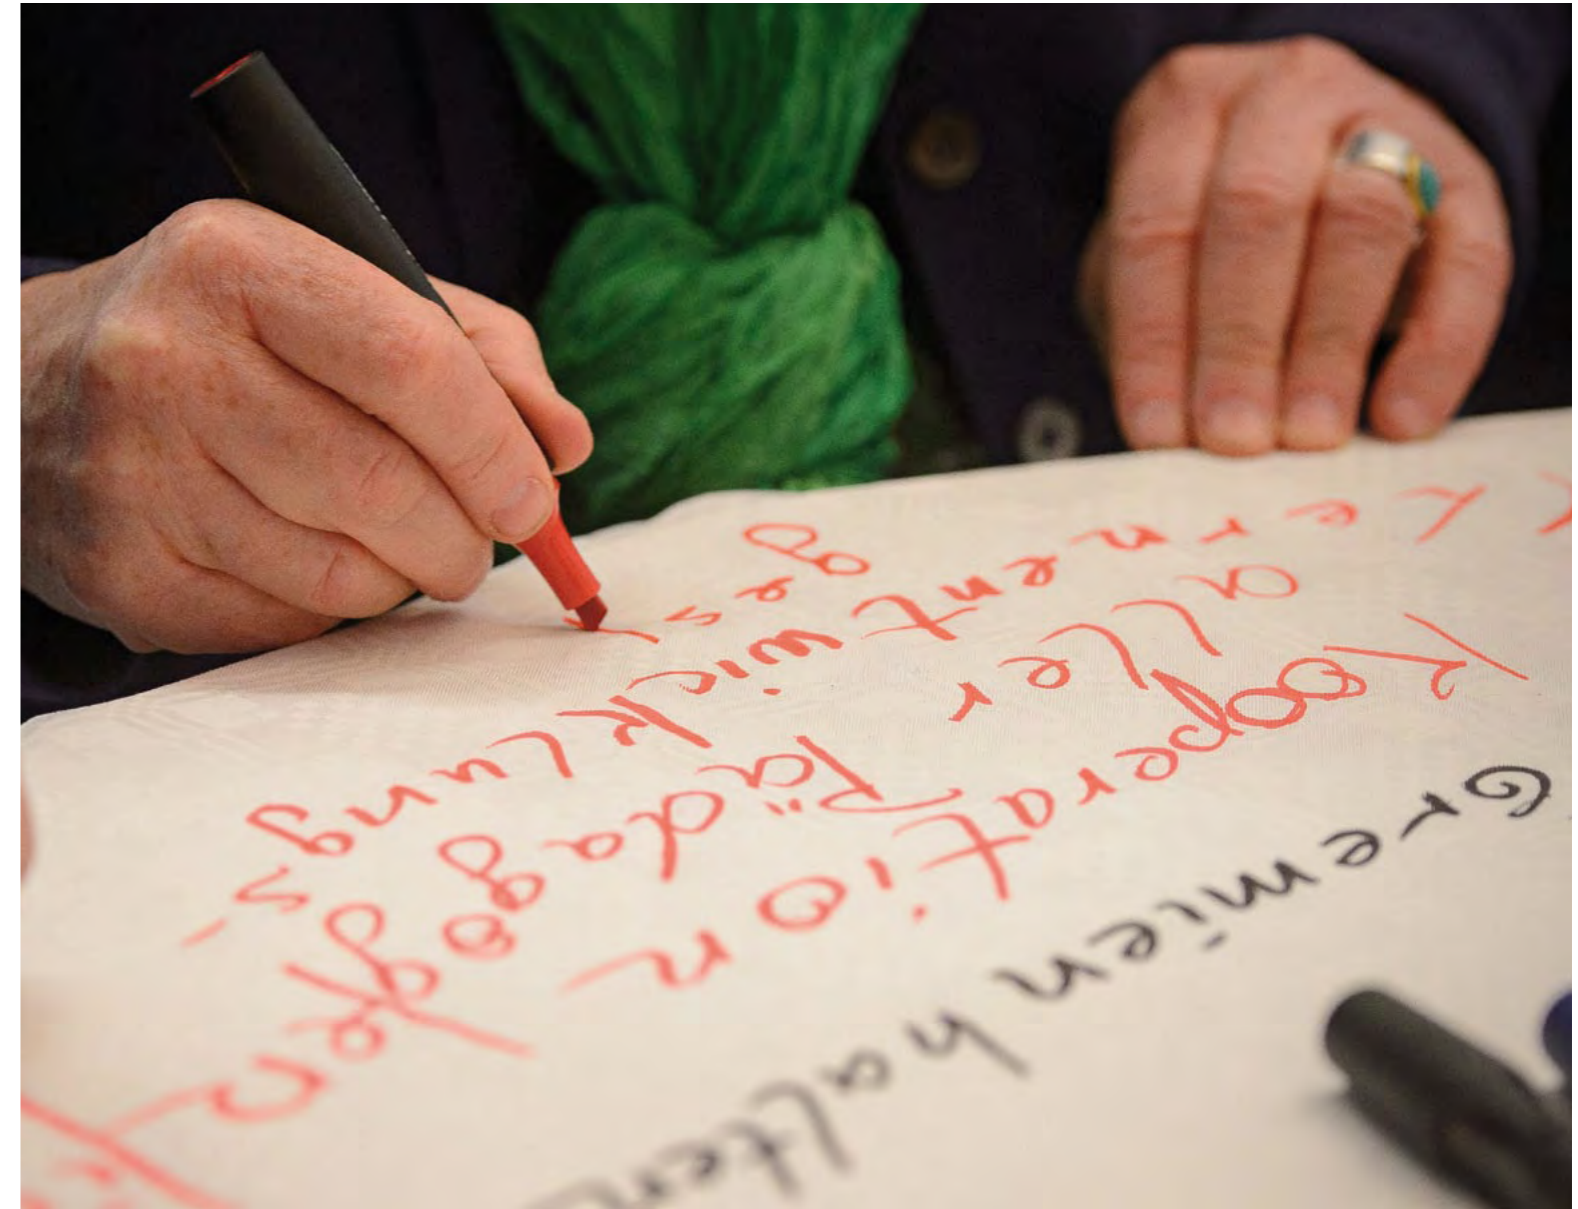 Gremien halten
Kooperation
aller Pädagogen
Lernentwicklungs-
ges